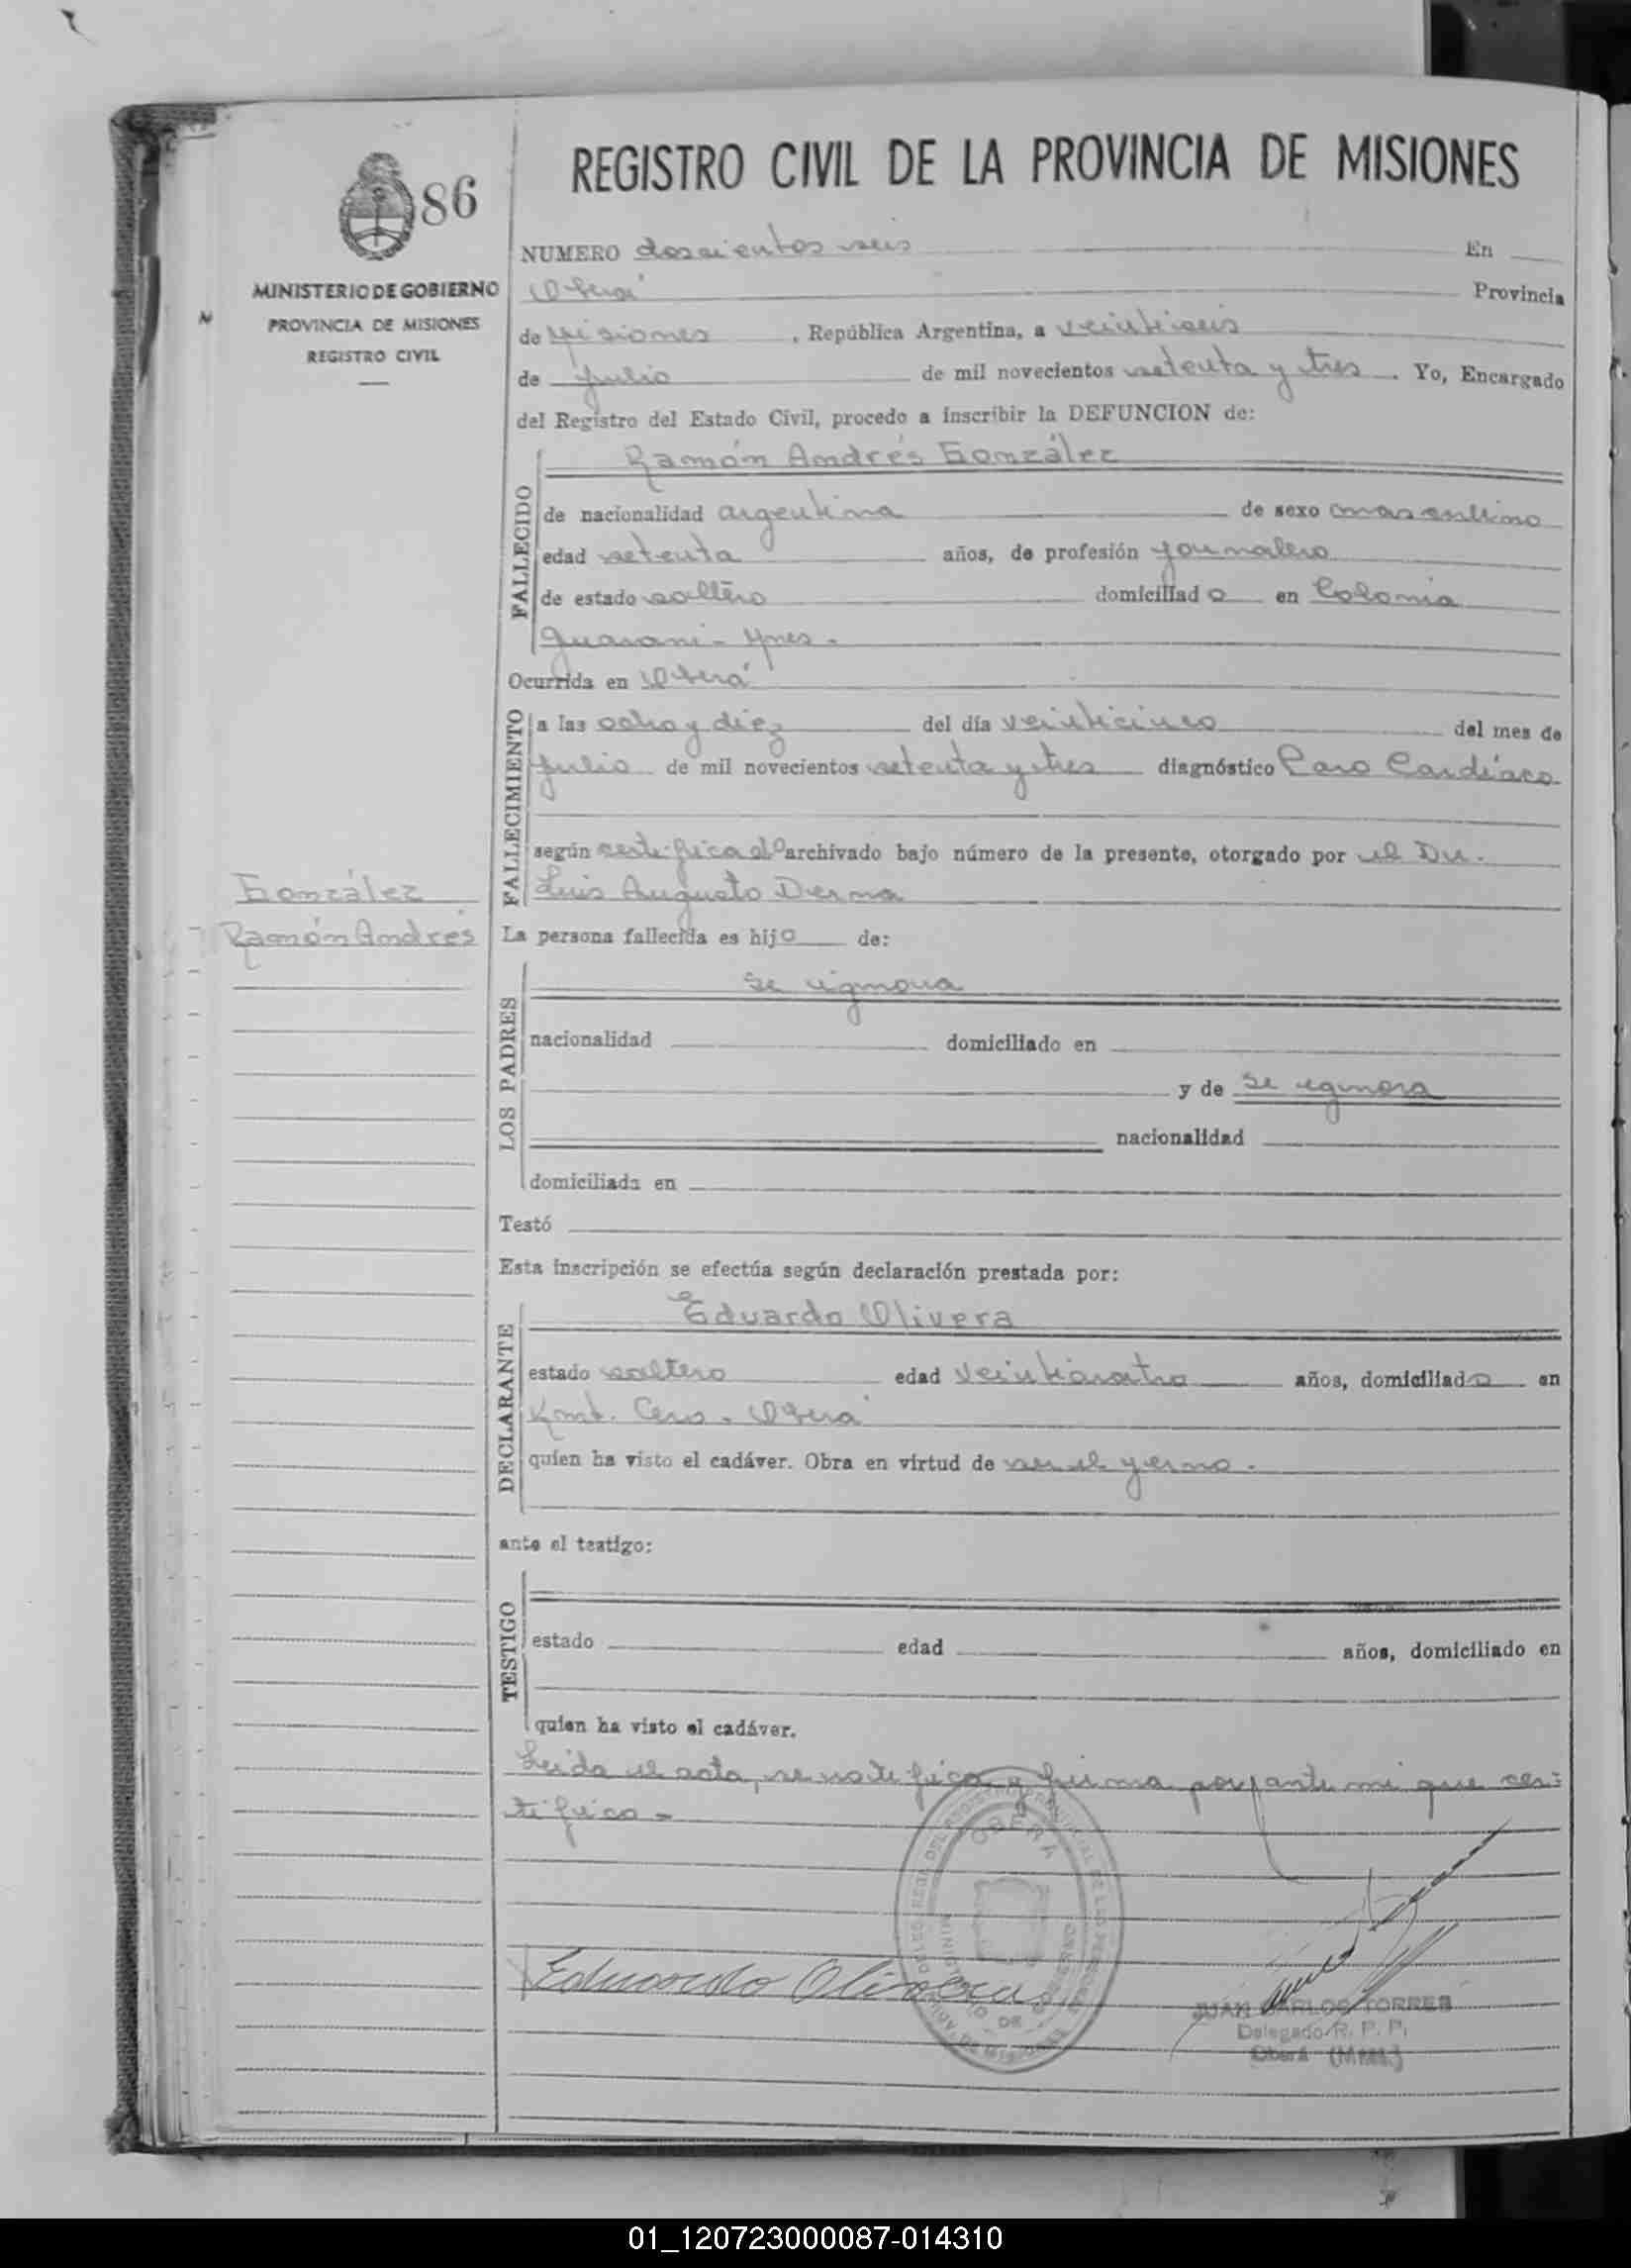 86
MINISTERIO DE GOBIERNO
PROVINCIA DE MISIONES
REGISTRO CIVIL
González
Ramón Andrés
REGISTRO CIVIL DE LA PROVINCIA DE MISIONES
NUMERO doscientos seis En
Oberá Provincia
de Misiones, República Argentina, a veintiseis
de julio de mil novecientos setenta y tres. Yo, Encargado
del Registro del Estado Civil, procedo a inscribir la DEFUNCION de:
FALLECIDO
Ramón Andrés González
de nacionalidad argentina de sexo masculino
edad setenta años, de profesión journalero
de estado soltero domiciliado en Colonia
Guarani - Mnes.
Ocurrida en Oberá
FALLECIMIENTO
a las ocho y diez del día veinticinco del mes de
julio de mil novecientos setenta y tres diagnóstico Paro Cardíaco
según certificado archivado bajo número de la presente, otorgado por el Dr.
Luis Augusto Derna
La persona fallecida es hijo de:
LOS PADRES
se ignora
nacionalidad domiciliado en
y de se ignora
nacionalidad
domiciliada en
Testó
Esta inscripción se efectúa según declaración prestada por:
DECLARANTE
Eduardo Olivera
estado soltero edad veinticuatro años, domiciliado en
Kmt. Cero - Oberá
quien ha visto el cadáver. Obra en virtud de ser el yerno.
ante el testigo:
TESTIGO
estado edad años, domiciliado en
quien ha visto el cadáver.
Leida el acta, se notifica y firma por ante mi que cer-
tifico -
OBERA
MINISTERIO DE GOBIERNO
Eduardo Olivera
JUAN CARLOS TORRES
Delegado R. P. P.
Oberá (Mnes.)
01_120723000087-014310